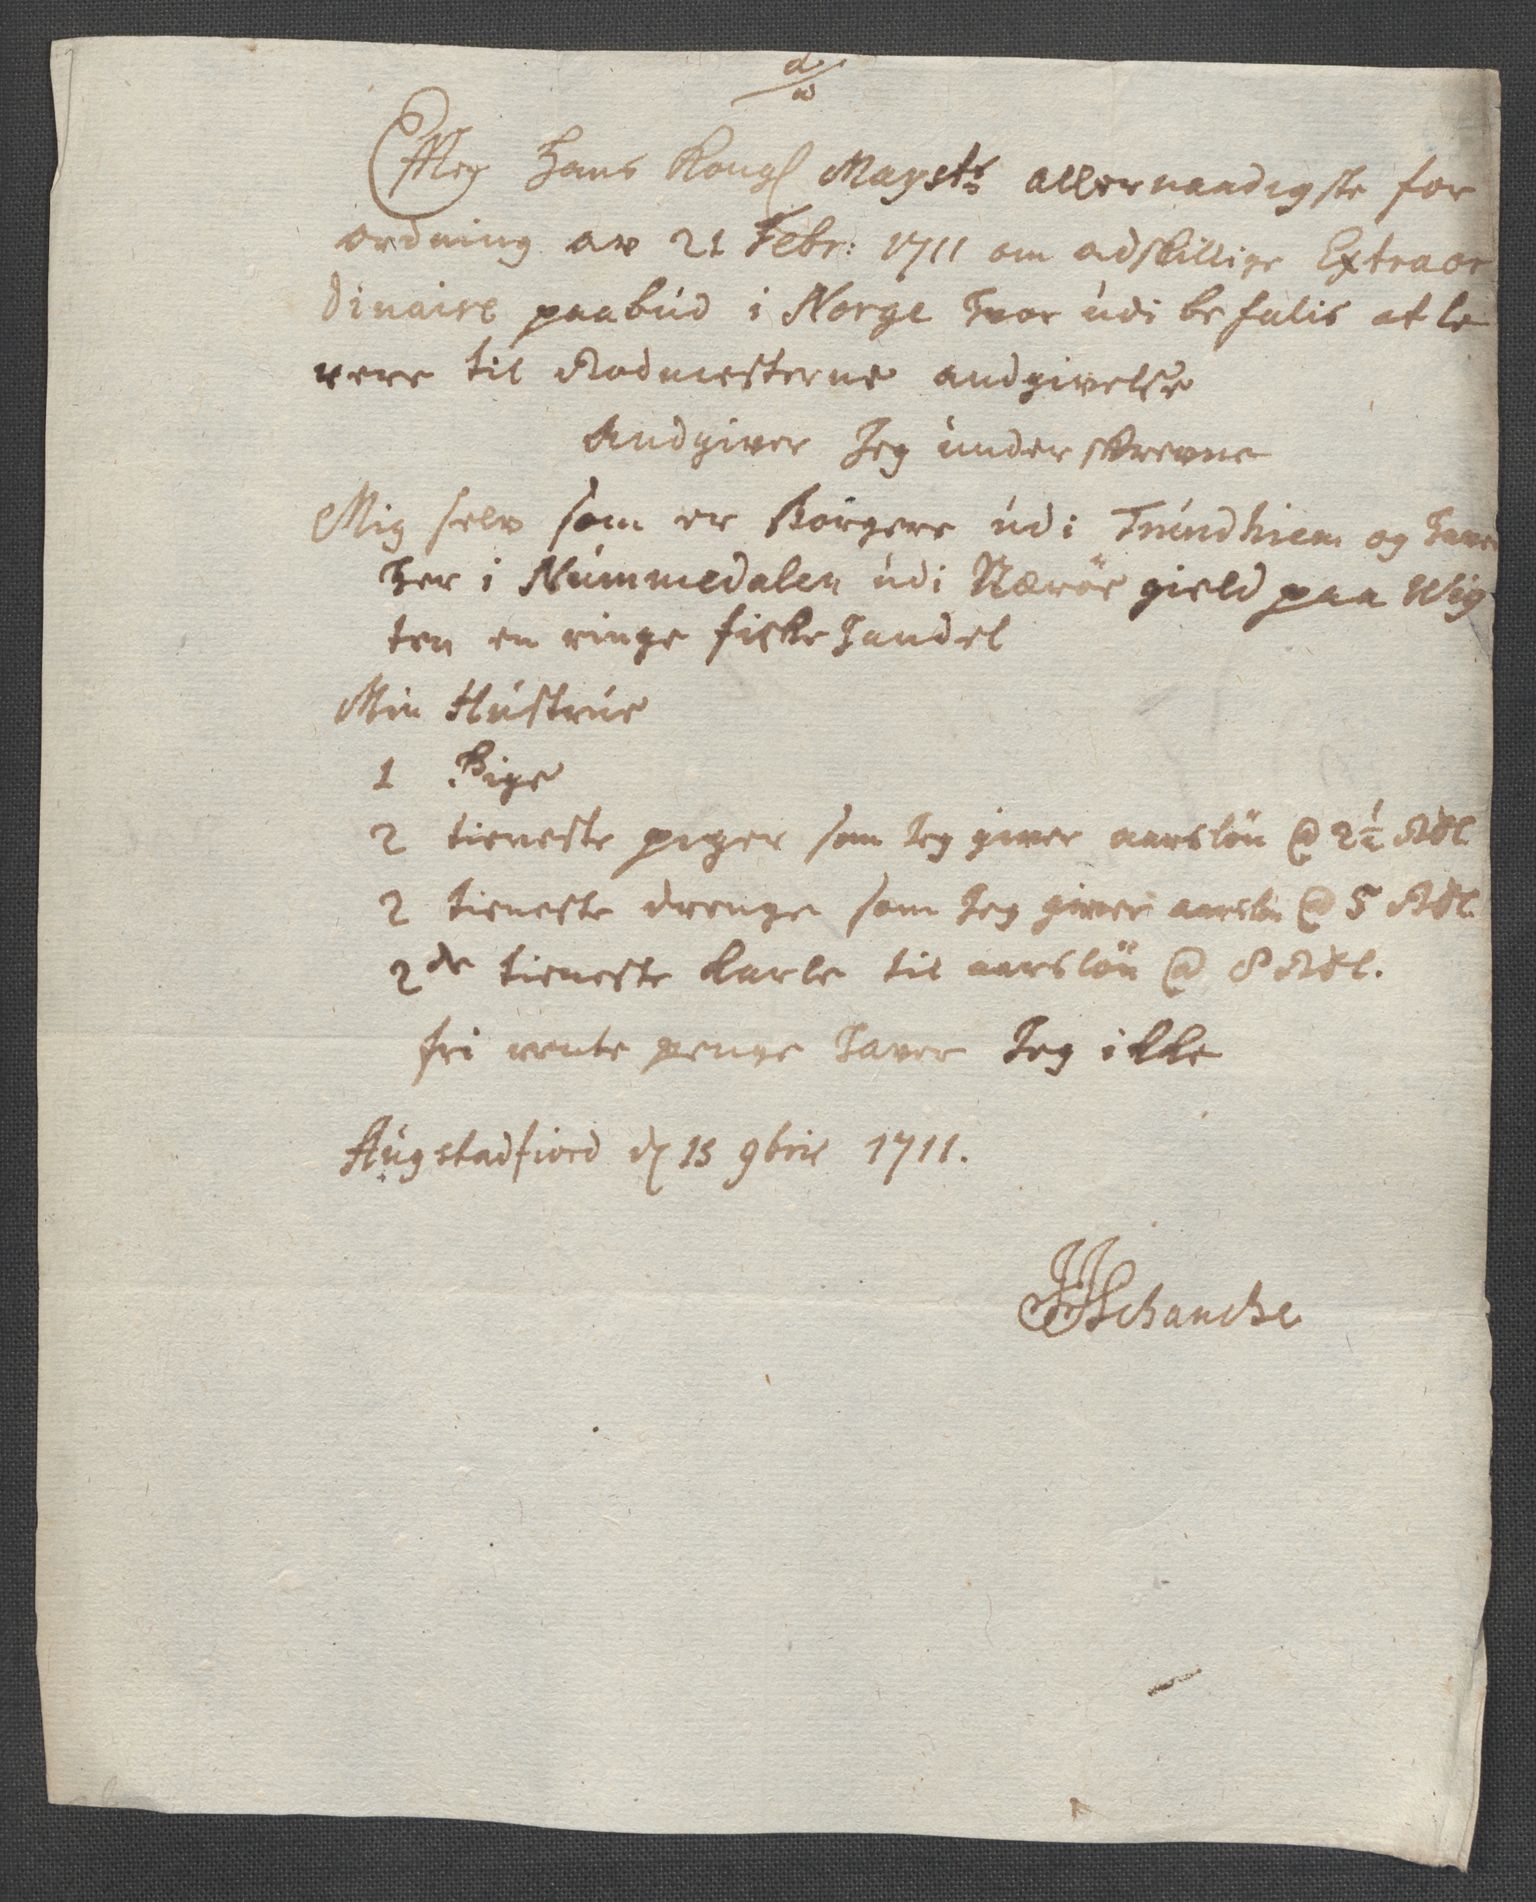 Effter Hans Kongl Maysts allernaadigste for
ordning av 21 Febr: 1711 om adskillige Extraor
dinaire paabúd i Norge hvor údi befalis at le
vere til Rodmesterne andgivelse
Andgiver Jeg únderskrevne
Mig selv som er Borgere údi Trúndhiem og haver
her i Númmedalen údi Nærøe gield paa Wig
ten en ringe fiske handel
Min Hústrúe
1 Pige
2 tieneste piger som Jeg giver aarsløn @ 2½ Rdl.
2 tieneste drenge som Jeg giver aarsløn @ 5 Rdl.
2de tieneste karle til aarsløn @ 8 Rdl.
fri rente penge haver Jeg ikke
Aúgstadfiord d 15 9brie 1711.
JJSchancke